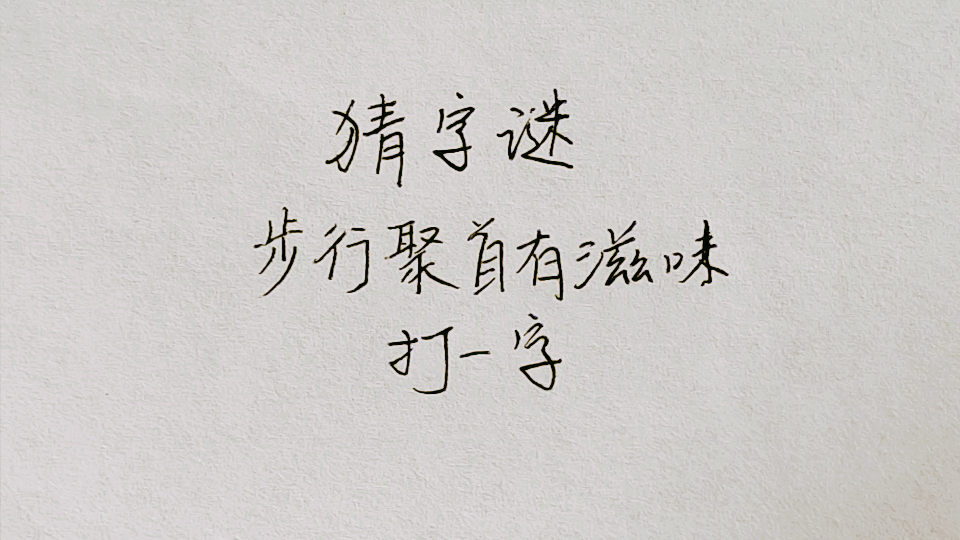 猜字谜
步行聚首有滋味
打一字